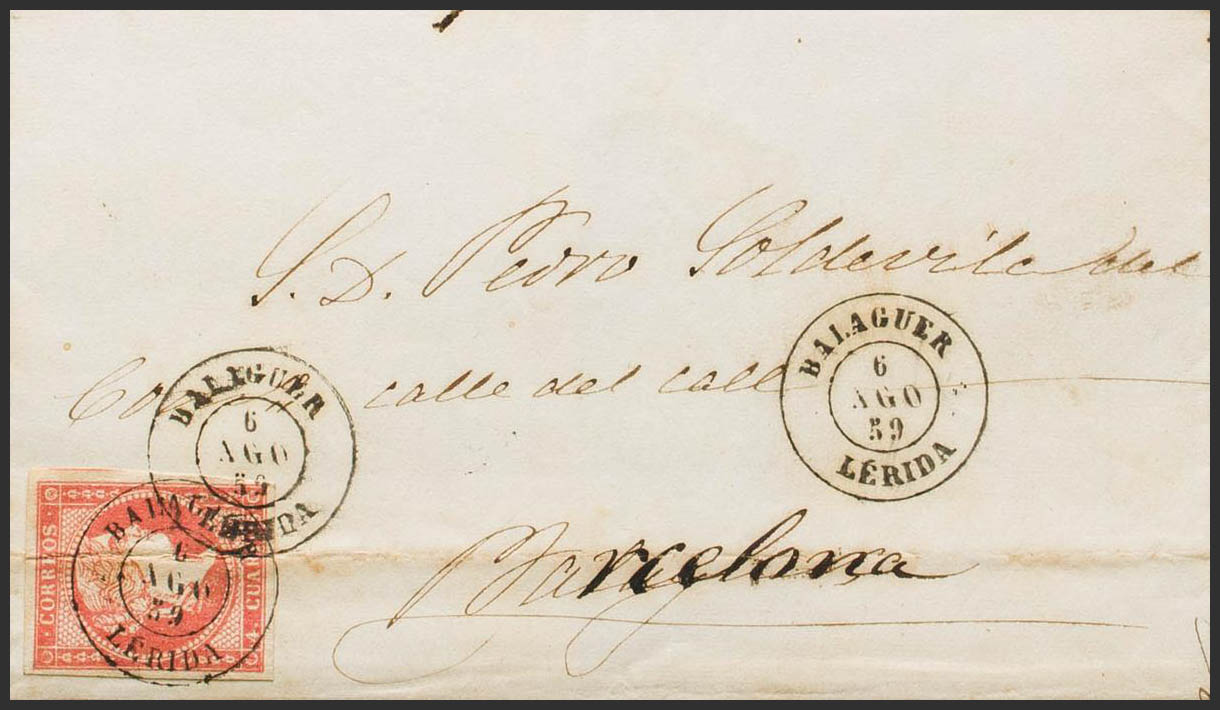 S. D. Pedro Soldevila del
Co calle del call
BALAGUER
6
AGO
59
LÉRIDA
BALAGUER
6
AGO
59
LÉRIDA
Barcelona
CORREOS
4 CUARTOS
BALAGUER
6
AGO
59
LÉRIDA